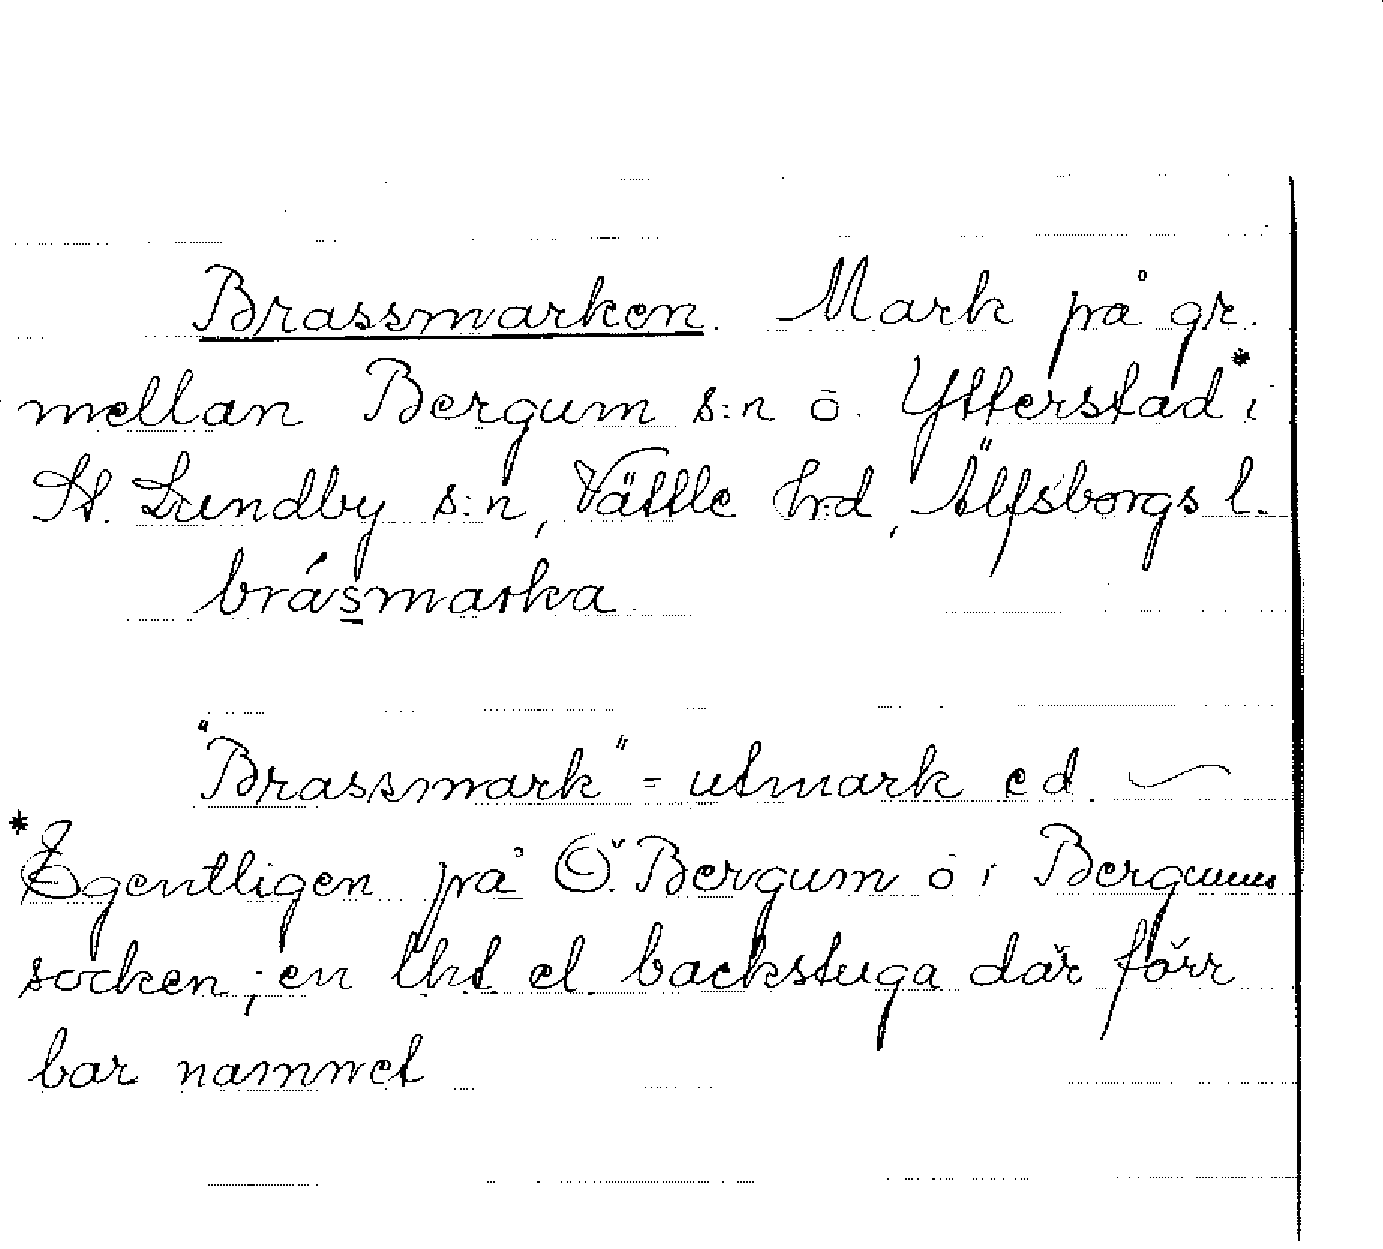 Brassmarken. Mark på gr.
mellan Bergum s:n o. Ytterstad* i
St. Lundby s:n, Vättle hrd, Älfsborgs l.
brásmarka
"Brassmark" = utmark ed.
*Egentligen på Ö. Bergum o i Bergums
socken; en lht el. backstuga där förr
bar namnet